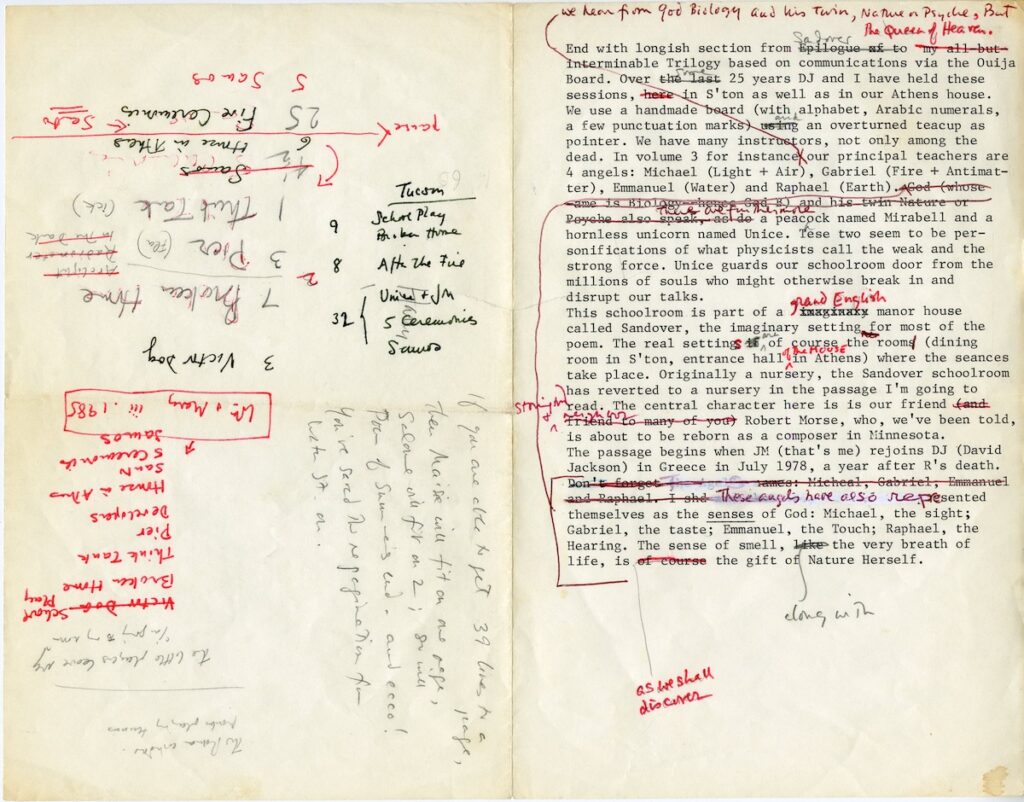 we hear from God Biology and his Twin, Nature or Psyche, But
the Queen of Heaven.
Sandover
End with longish section from Epilogue xf to my all-but-
interminable Trilogy based on communications via the Ouija
Board. Over the last some 25 years DJ and I have held these
sessions, here in S'ton as well as in our Athens house.
We use a handmade board (with alphabet, Arabic numerals,
a few punctuation marks) using and an overturned teacup as
pointer. We have many instructors, not only among the
dead. In volume 3 for instance, our principal teachers are
4 angels: Michael (Light + Air), Gabriel (Fire + Antimat-
ter), Emmanuel (Water) and Raphael (Earth). God (whose
name is Biology-hence God B) and his twin Nature or
Psyche also speak, as do There are furthermore a peacock named Mirabell and a
hornless unicorn named Unice. Tese two seem to be per-
h
sonifications of what physicists call the weak and the
strong force. Unice guards our schoolroom door from the
millions of souls who might otherwise break in and
disrupt our talks.
grand English
This schoolroom is part of a imaginaxy manor house
called Sandover, the imaginary setting for most of the
poem. The real settings is are of course the rooms (dining
room in S'ton, entrance hall of the House in Athens) where the seances
take place. Originally a nursery, the Sandover schoolroom
has reverted to a nursery in the passage I'm going to
read. The central character here is is our friend (and
Stonington
neighbor
friend to many of you) Robert Morse, who, we've been told,
is about to be reborn as a composer in Minnesota.
The passage begins when JM (that's me) rejoins DJ (David
Jackson) in Greece in July 1978, a year after R's death.
Don't forget names: Micheal, Gabriel, Emmanuel
and Raphael. I shd These angels have also represented
themselves as the senses of God: Michael, the sight;
Gabriel, the taste; Emmanuel, the Touch; Raphael, the
Hearing. The sense of smell, like the very breath of
life, is of course the gift of Nature Herself.
along with
as we shall
discover
Tucson
6 School Play
Broken Home
8 After The Fire
32 Unice + JM
5 Ceremonies
Samos
If you are able to get 39 lines to a page,
Then Maisie will fit on one page,
Salome will fit on 2; so will
Poem of Summer's End - and ecco!
You've saved the pagination for
later St on.
5 Samos
25 Five Ceremonies
Santo
pause
6 House in Athens
Samos
1 Think Tank (ick)
3 Pier (Fla)
2
7 Broken Home
3 Victor Dog
Wm + Mary iii.1985
Samos
5 Ceremonies
Santo
House in Athens
Developers
Pier
Think Tank
Broken Home
Victor Dog
School Play